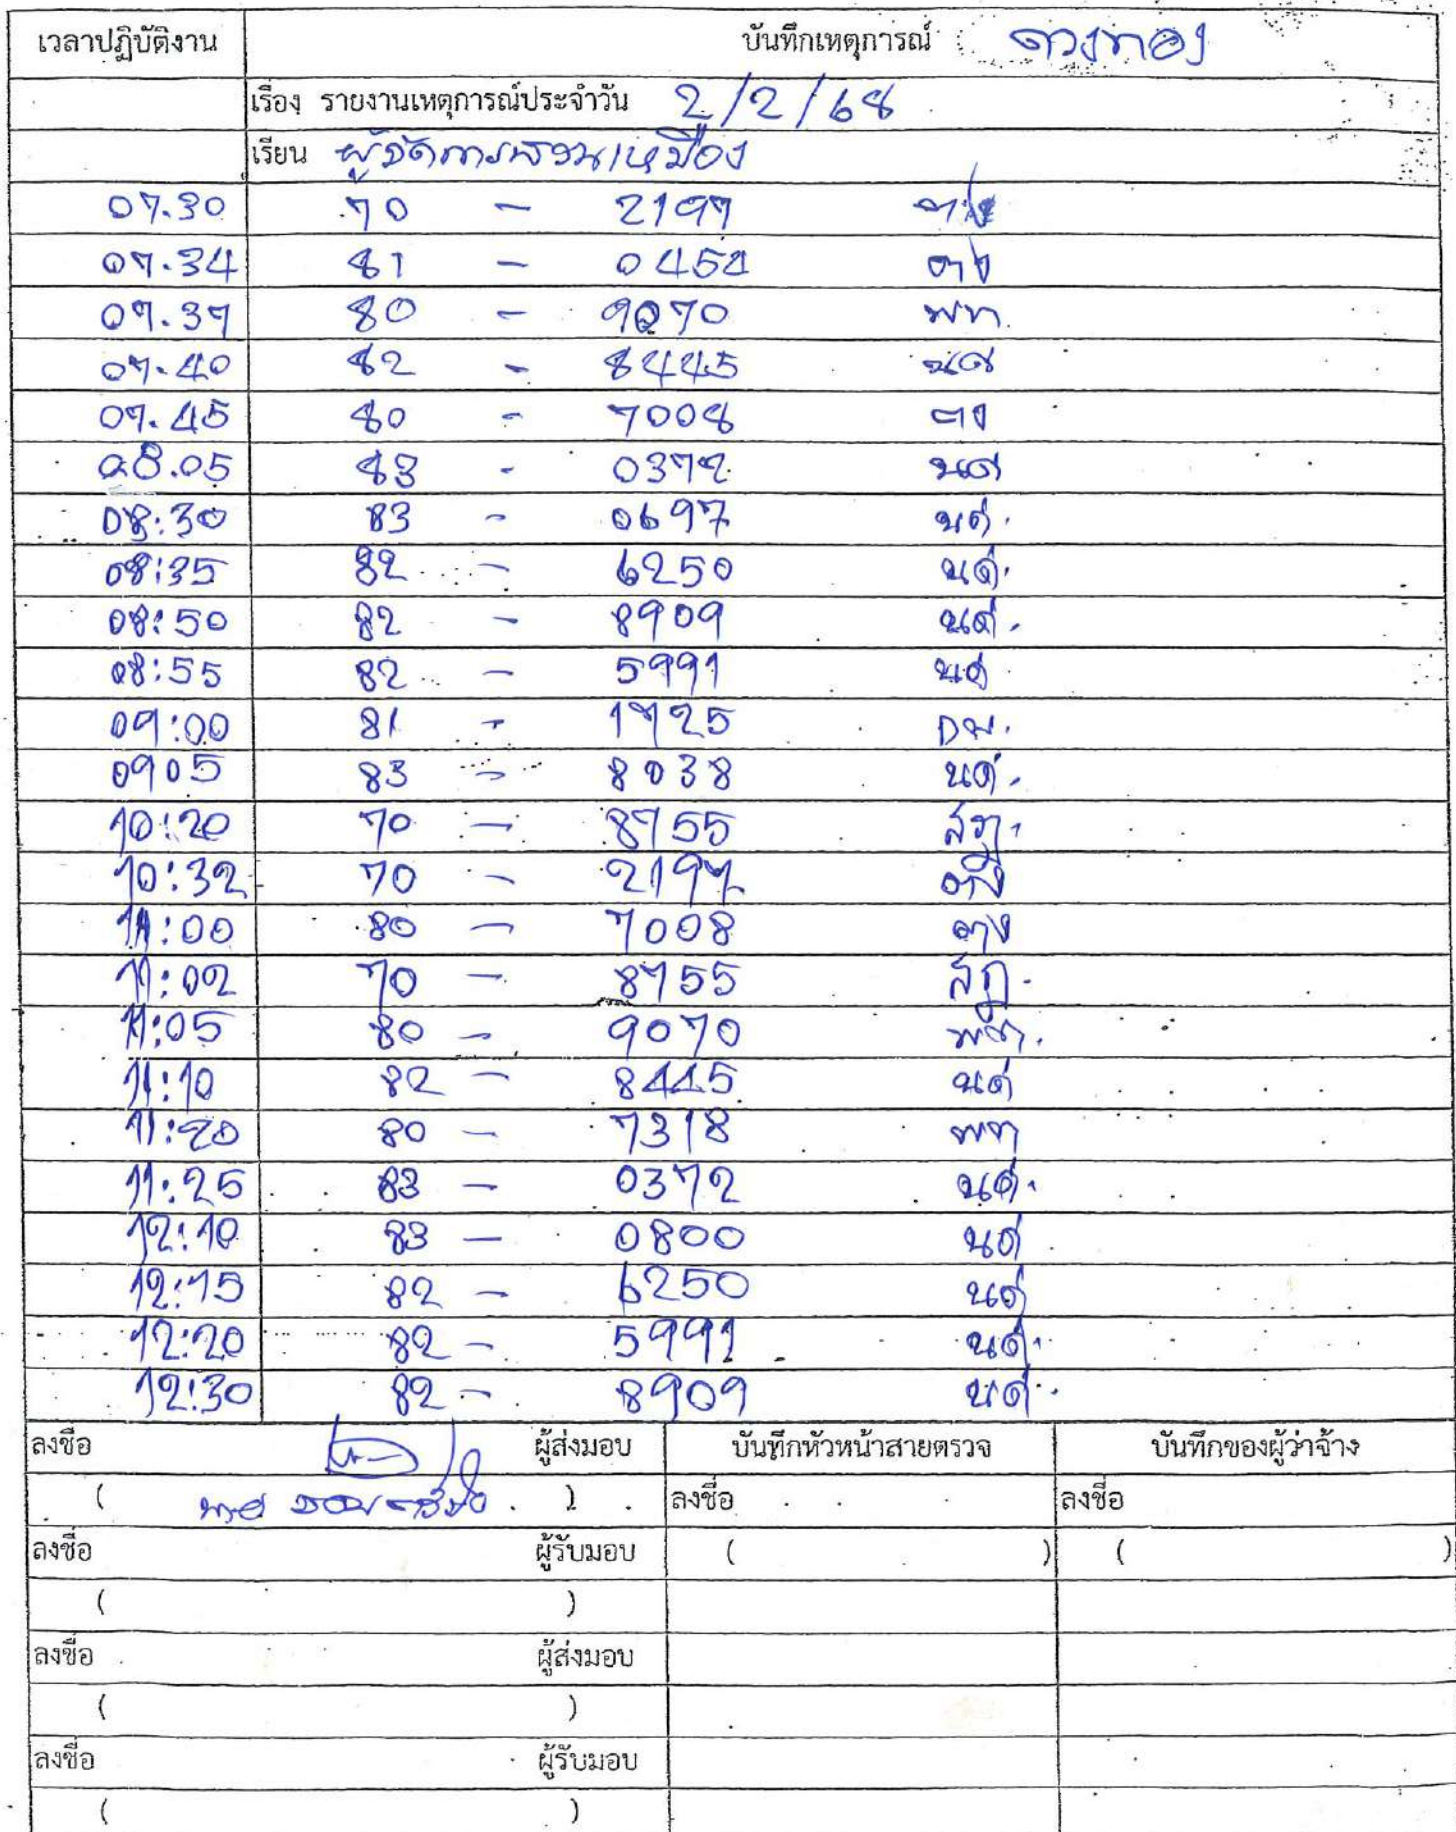 เวลาปฏิบัติงาน บันทึกเหตุการณ์ ดวงทอง
เรื่อง รายงานเหตุการณ์ประจำวัน 2/2/68
เรียน ผู้จัดการสวนเหมือง
07.30 70 - 2197 ตง
07.34 81 - 0454 ตง
07.37 80 - 9070 พท.
07.40 82 - 8445 นศ
07.45 80 - 7008 ตง
08.05 83 - 0372 นศ
08:30 83 - 0697 นศ.
08:35 82 - 6250 นศ.
08:50 82 - 8909 นศ.
08:55 82 - 5991 นศ
09:00 81 - 1725
0905 83 - 8038 นศ.
10:20 70 - 8755 สฎ.
10:32 70 - 2197 ตง
11:00 80 - 7008 ตง
11:02 70 - 8755 สฎ.
11:05 80 - 9070 พท.
11:10 82 - 8445 นศ
11:20 80 - 7318 พท
11:25 83 - 0372 นศ.
12:10 83 - 0800 นศ
12:15 82 - 6250 นศ
12:20 82 - 5991 นศ.
12:30 82 - 8909 นศ.
ลงชื่อ ผู้ส่งมอบ บันทึกหัวหน้าสายตรวจ บันทึกของผู้ว่าจ้าง
( ) ลงชื่อ ลงชื่อ
ลงชื่อ ผู้รับมอบ ( ) ( )
( )
ลงชื่อ ผู้ส่งมอบ
( )
ลงชื่อ ผู้รับมอบ
( )